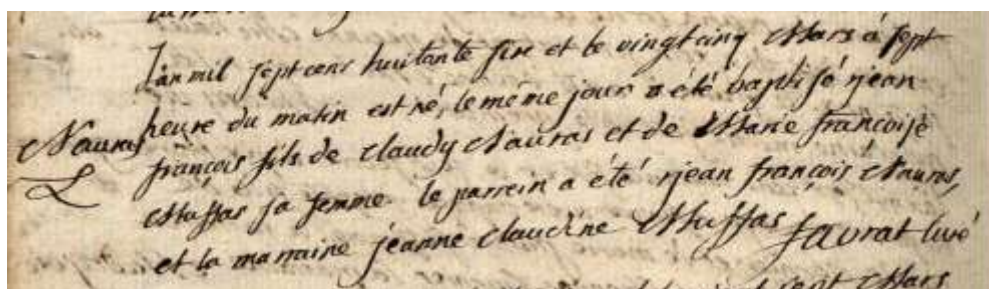 L'an mil sept cens huitante sixe et le vingtcinq Mars à sept
heure du matin est né, le même jour a été baptisé jean
Navras françois fils de claudy Navras et de Marie françoise
Muffas sa femme le parrein a été jean françois Navras,
et la marraine jeanne claudine Muffas favrat curé
sept Mars